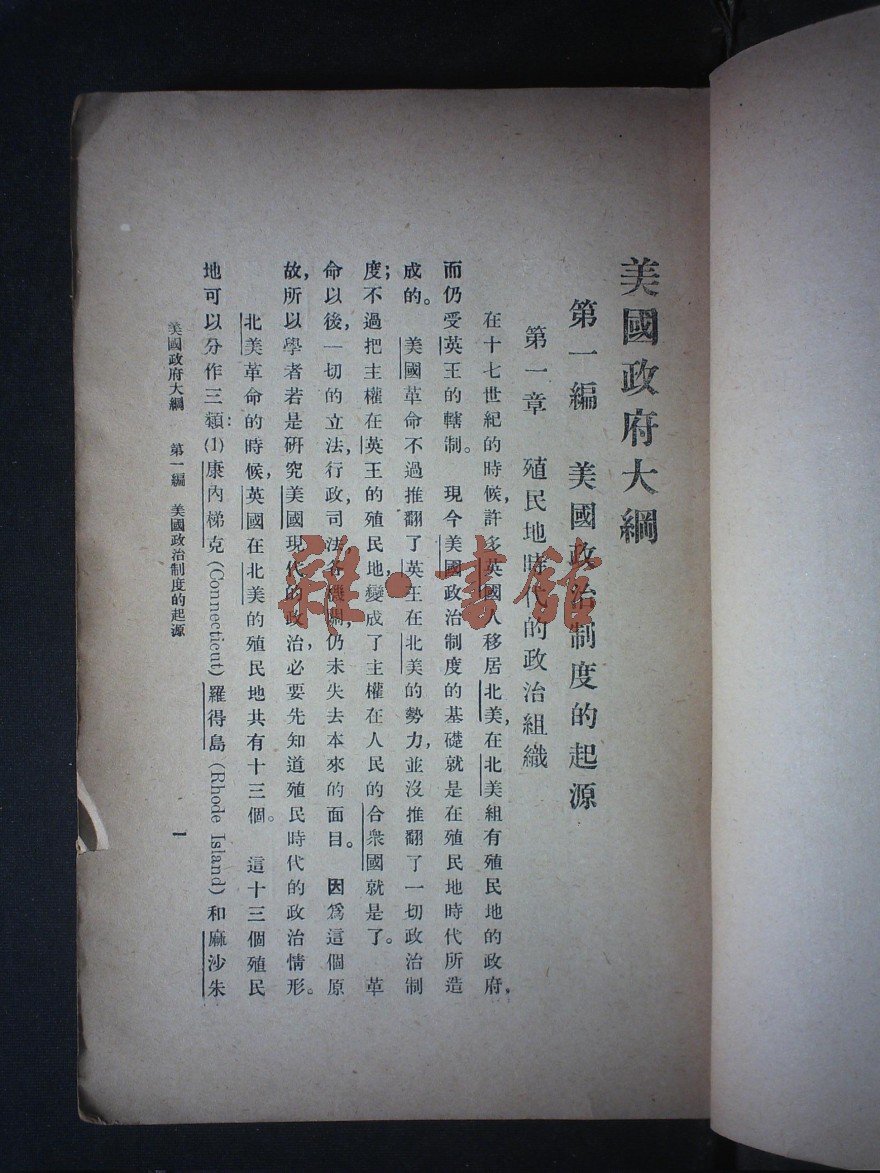 美國政府大綱
第一編　美國政治制度的起源
第一章　殖民地時代的政治組織
在十七世紀的時候，許多英國人移居北美，在北美組有殖民地的政府，
而仍受英王的轄制。現今美國政治制度的基礎就是在殖民地時代所造
成的。美國革命不過推翻了英王在北美的勢力，並沒推翻了一切政治制
度；不過把主權在英王的殖民地，變成了主權在人民的合衆國就是了。革
命以後，一切的立法，行政，司法各機關，仍未失去本來的面目。因爲這個原
故，所以學者若是研究美國現代的政治，必要先知道殖民時代的政治情形。
北美革命的時候，英國在北美的殖民地共有十三個。這十三個殖民
地可以分作三類：(1)康內梯克(Connecticut)羅得島(Rhode Island)和麻沙朱
美國政府大綱　第一編　美國政治制度的起源　一
雜·書館